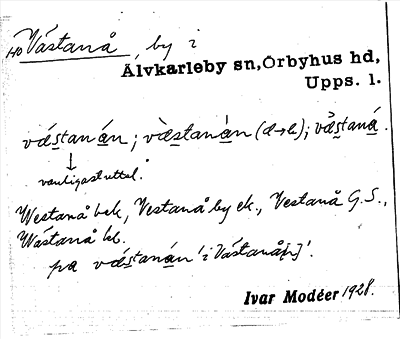 HO Västanå, by i
Älvkarleby sn, Örbyhus hd,
Upps. l.
væ̀stanán; væ̀stanàn (d→l); væ̀staná.
↓
vanligast uttal.
Westanå bek, Vestanå by ek., Vestanå G.S.,
Wästanå kb.
på væ̀stanán 'i Västanå[n]'.
Ivar Modéer 1928.